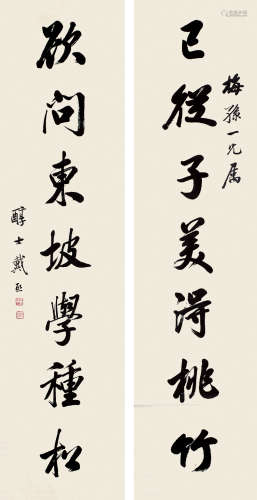 梅孫一兄屬
已從子美得桃竹
欲問東坡學種松
醇士戴熙